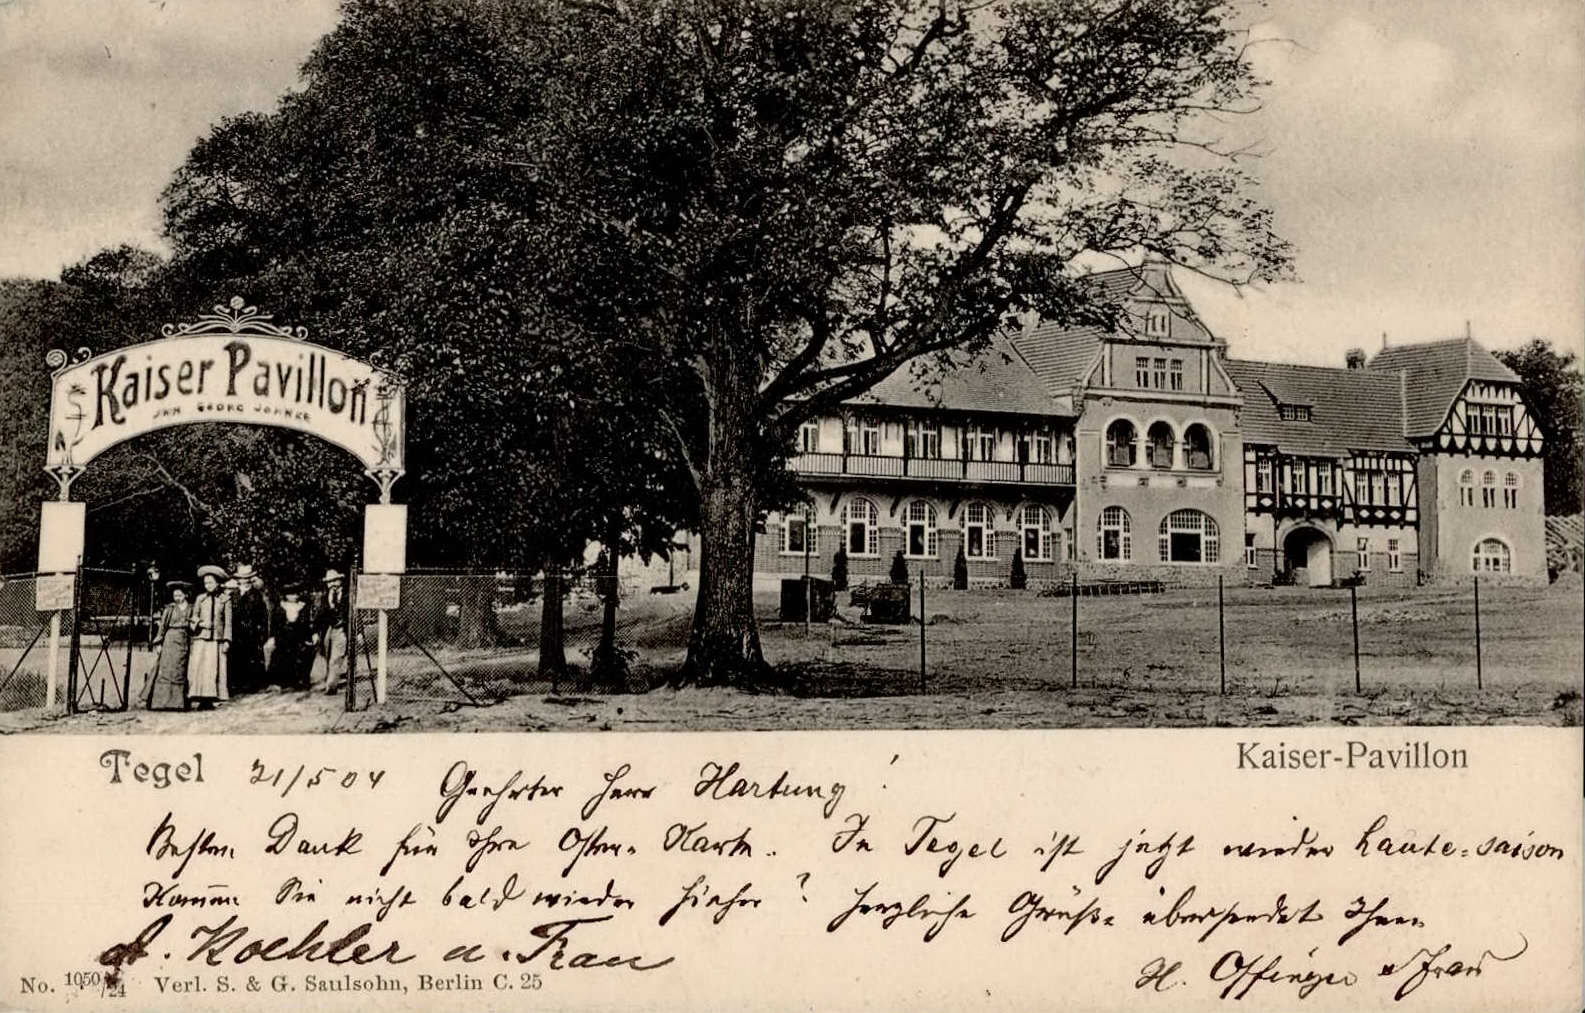 Kaiser Pavillon
JNH GEORG JOHNKE
Tegel 21/5 04 Geehrter Herr Hartung!
Kaiser-Pavillon
Besten Dank für Ihre Oster-Karte. In Tegel ist jetzt wieder haute-saison
Kommen Sie nicht bald wieder hierher? Herzliche Grüße übersendet Ihnen
A. Koehler u. Frau
H. Offinger u Frau
No. 1050/24 Verl. S. & G. Saulsohn, Berlin C. 25